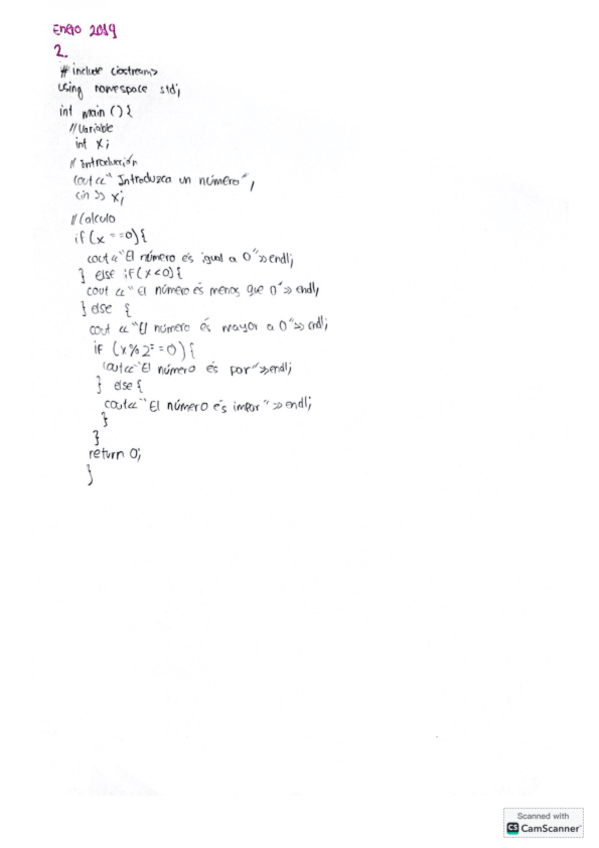 Enero 2019
2.
#include <iostream>
using namespace std;
int main () {
//Variable
int x;
// Introducción
cout << "Introduzca un número";
cin >> x;
// Calculo
if (x ==0) {
cout << "El número es igual a 0" >> endl;
} else if (x < 0) {
cout << "El número es menos que 0" >> endl;
} else {
cout << "El número es mayor a 0" >> endl;
if (x % 2 == 0) {
cout << "El número es par" >> endl;
} else {
cout << "El número es impar" >> endl;
}
}
return 0;
}
Scanned with
CS CamScanner